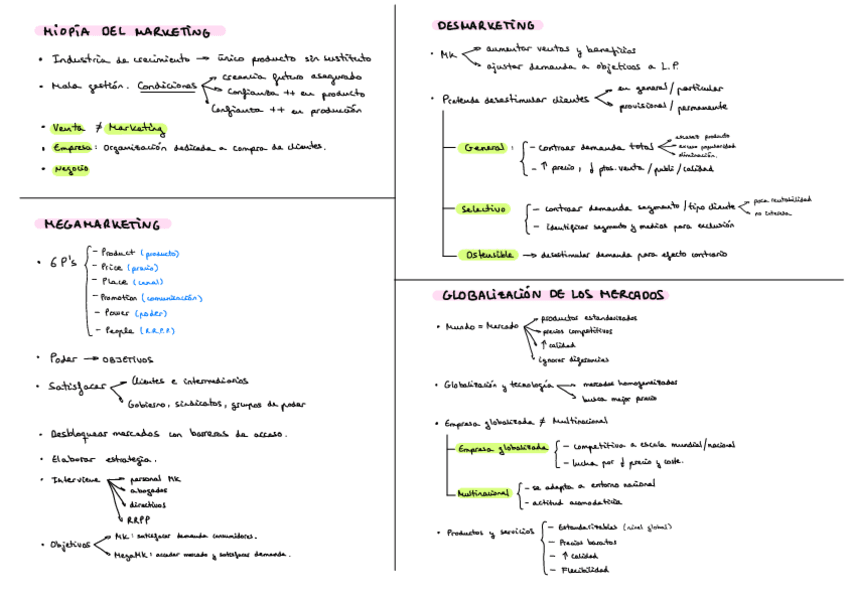 MIOPÍA DEL MARKETING
• Industria de crecimiento → único producto sin sustituto
• Mala gestión. Condiciones
creencia futuro asegurado
confianza ++ en producto
confianza ++ en producción
• Venta ≠ Marketing
• Empresa: Organización dedicada a compra de clientes.
• Negocio
MEGAMARKETING
• 6 P's
- Product (producto)
- Price (precio)
- Place (canal)
- Promotion (comunicación)
- Power (poder)
- People (RR.PP)
• Poder → OBJETIVOS
• Satisfacer
Clientes e intermediarios
Gobierno, sindicatos, grupos de poder
• Desbloquear mercados con barreras de acceso.
• Elaborar estrategia.
• Interviene
personal MK
abogados
directivos
RRPP
• Objetivos
MK: satisfacer demanda consumidores.
MegaMK: acceder mercado y satisfacer demanda.
DESMARKETING
• MK
aumentar ventas y beneficios
ajustar demanda a objetivos a L.P.
• Pretende desestimular clientes
en general / particular
provisional / permanente
General:
- contraer demanda total
escasez producto
exceso popularidad
eliminación.
- ↑ precio, ↓ ptos. venta / publi / calidad
Selectivo
- contraer demanda segmento / tipo cliente
poca rentabilidad
no interesa
- identificar segmento y medios para exclusión
Ostensible → desestimular demanda para efecto contrario
GLOBALIZACIÓN DE LOS MERCADOS
• Mundo = Mercado
productos estandarizados
precios competitivos
↑ calidad
ignorar diferencias
• Globalización y tecnología
mercados homogeneizados
busca mejor precio
• Empresa globalizada ≠ Multinacional
Empresa globalizada
- competitiva a escala mundial/nacional
- lucha por ↓ precio y coste.
Multinacional
- se adapta a entorno nacional
- actitud acomodaticia
• Productos y servicios
- Estandarizables (nivel global)
- Precios baratos
- ↑ calidad
- Flexibilidad